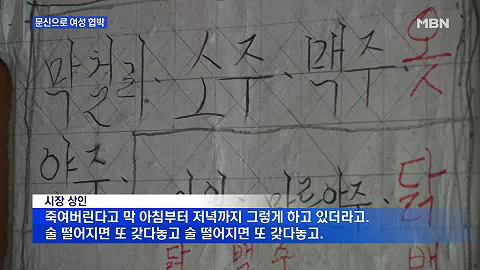 문신으로 여성 협박
MBN
막걸리. 소주. 맥주. 옻
야주.
마른안주. 닭
닭 백숙
시장 상인
죽여버린다고 막 아침부터 저녁까지 그렇게 하고 있더라고.
술 떨어지면 또 갖다놓고 술 떨어지면 또 갖다놓고.